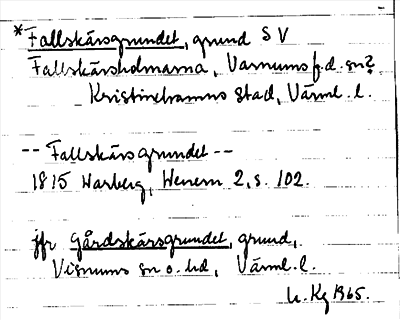 *Fallskärsgrundet, grund SV
Fallskärsholmarna, Varnums f.d. sn?
Kristinehamns Stad, Värml. l.
-- Fallskärsgrundet --
1815 Warberg, Wenern 2, s. 102.
jfr Gårdskärsgrundet, grund,
Visnums sn o. hd, Värml. l.
U. Kg 1965.